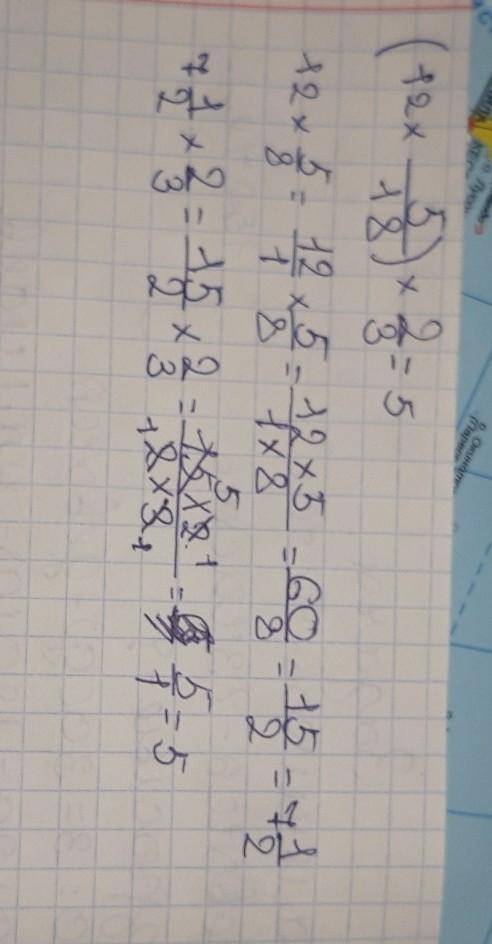 (12 × 5/18) × 2/3 = 5
12 × 5/8 = 12/1 × 5/8 = 12×5/1×8 = 60/8 = 15/2 = 7 1/2
7 1/2 × 2/3 = 15/2 × 2/3 = 15×2/2×3 5 1 1 1 = 5/1 = 5